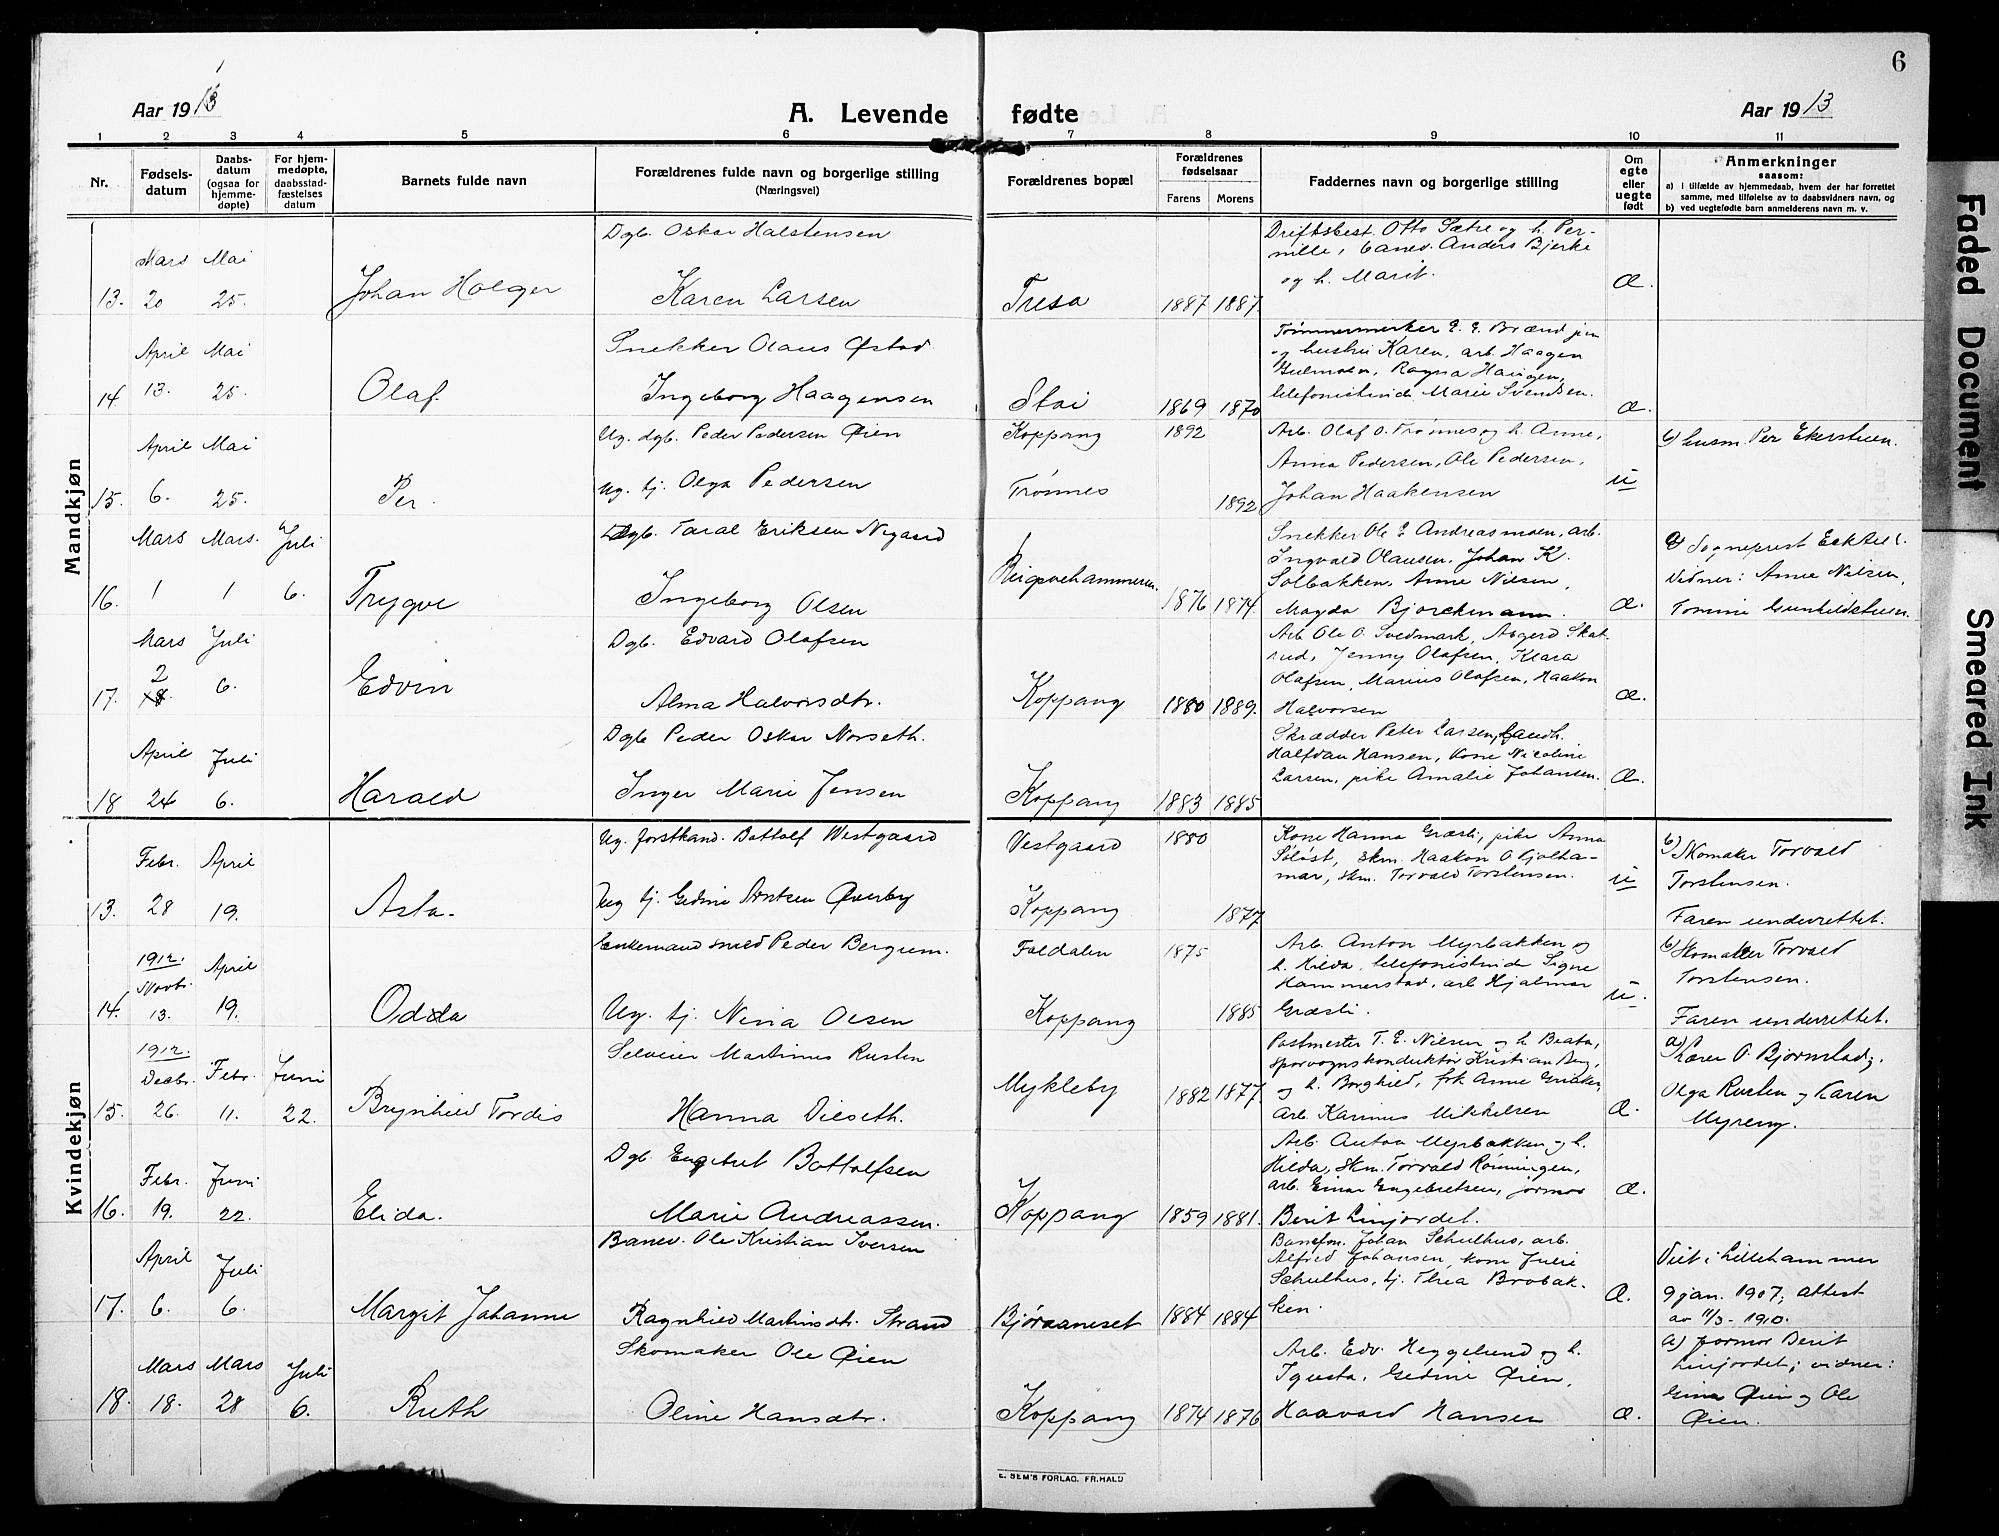 6
Aar 1913
A. Levende fødte
Aar 1913
1 2 3 4 5 6 7 8 9 10 11
Nr.
Fødsels-
datum
Daabs-
datum
(ogsaa for
hjemme-
døpte)
For hjem-
medøpte,
daabsstad-
fæstelses
datum
Barnets fulde navn
Forældrenes fulde navn og borgerlige stilling
(Næringsvei)
Forældrenes bopæl
Forældrenes
fødselsaar
Farens Morens
Faddernes navn og borgerlige stilling
Om
egte
eller
uegte
født
Anmerkninger
saasom:
a) i tilfælde av hjemmedaab, hvem der har forrettet
samme, med tilføielse av to daabsvidners navn, og
b) ved uegtefødte barn anmelderens navn m. v.
Mandkjøn
13.
Mars
20
Mai
25.
Johan Holger
Dgb. Oskar Halstensen
Karen Larsen
Tresa
1887 1887.
Driftsbest. Otto Sætre og h. Per-
nille, banev. Anders Bjerke
og h. Marit.
Æ.
14.
April
13.
Mai
25.
Olaf
Snekker Olaus Østad
Ingeborg Haagensen
Stai
1869 1870
Tømmermerker E. E. Brænd jun
og hustru Karen, arb. Haagen
Ragna Haugen,
telefonistinde Marie Svendsen.
Æ.
15.
April
6.
Mai
25.
Per.
Ug. dgb. Peder Pedersen Øien
Ug. tj. Olga Pedersen
Koppang
Trønnes
1892
1892
Arb. Olaf O. Trønnes og h. Anne,
Anna Pedersen, Ole Pedersen,
Johan Haakensen
u
b) husm. Per Ekerstuen.
16.
Mars
1
Mars.
1
Juli
6.
Trygve
Dgb. Taral Eriksen Nygaard
Ingeborg Olsen
1876 1874.
Snekker Ole E Andreasmoen, arb.
Ingvald Olausen, Johan K.
Solbakken, Anne Nilsen,
Magda Bjorckmann.
Æ.
a) Sogneprest
Vidner: Anne Nilsen,
Tomine Gunhildstuen.
17.
Mars
2
Juli
6.
Edvin
Dgb. Edvard Olafsen
Alma Halvorsdtr.
Koppang
1880 1889.
Arb. Ole O. Svedmark, Asgerd Skat-
rud, Jenny Olafsen, Klara
Olafsen, Marius Olafsen, Haakon
Halvorsen
Æ.
18
April
24
Juli
6.
Harald
Dgb Peder Oskar Norseth.
Inger Marie Jensen
Koppang
1883 1885
Skrædder Peter Larsen, Landh.
Halfdan Hansen, kone Nicoline
Larsen, pike Amalie Johansen.
Æ.
Kvindekjøn
13.
Febr.
28
April
19.
Asta.
Ug. forstkand. Bottolf Westgaard
Ug tj. Gedine Arntsen Øverby
Vestgaard
Koppang
1880
1877
Kone Hanna Græsli, pike Anna
Søløst, skm. Haakon O. Fjolha-
mar, skm. Torvald Torstensen.
u
b) Skomaker Torvald
Torstensen.
Faren underrettet.
14.
1912.
Novbr.
13.
April
19.
Odda
Enkemand smed Peder Bergum.
Ug. tj. Nina Olsen
Foldalen
Koppang
1875
1885
Arb. Anton Myrbakken og
h. Hilda, telefonistinde Signe
Hammerstad, arb Hjalmar
Græsli.
u.
b) Skomaker Torvald
Torstensen.
Faren underrettet.
15.
1912.
Decbr.
26.
Febr.
11.
Juni
22.
Brynhild Tordis
Selveier Martinus Rusten
Hanna Dieseth.
Mykleby
1882 1877.
Postmester T. E. Nilsen og h Beata,
sporvognskonduktør Kristian Berg,
og h. Borghild, frk Anne
Arb. Karinus Mikkelsen
Æ.
a) Lærer O. Bjørnstad,
Olga Rusten og Karen
Myreng.
16.
Febr.
19.
Juni
22.
Elida.
Dgb. Engebret Bottolfsen
Marie Andreassen.
Koppang
1859 1881.
Arb. Anton Myrbakken og h.
Hilda, skm. Torvald Rønningen,
arb. Einar Engebretsen, jormor
Berit Linjordet.
Æ.
17.
April
6.
Juli
6.
Margit Johanne
Banev. Ole Kristian Iversen
Ragnhild Martinsdtr. Strand
Bjøraaneset
1884 1884
Baneform. Johan Schulhus, arb.
Alfred Johansen, kone Julie
Schulhus, tj. Thea Brobak-
ken.
Æ.
Viet i Lillehammer
9 jan. 1907, attest
av 11/3-1910.
18.
Mars
18.
Mars
28
Juli
6.
Ruth
Skomaker Ole Øien
Oline Hansdtr.
Koppang
1874 1876
Arb. Edv. Heggelund og h.
Igusta, Gedine Øien,
Haavard Hansen
Æ.
a) jormor Berit
Linjordet; vidner:
Gina Øien og Ole
Øien.
E. SEM'S FORLAG, FR.HALD
Faded Document
Smeared Ink